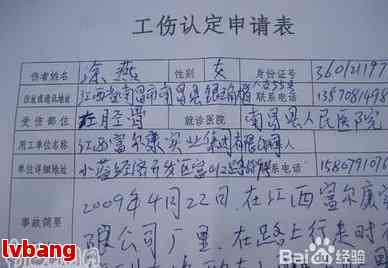 工伤认定申请表
伤者姓名 涂燕 性别 女 身份证号 360121197
住址或通讯地址 江西省南昌市南昌县 联系电话 1357081498
受伤部位 就诊医院 南昌县人民医院
用工单位名称 江西富尔康实业集团有限公司
单位详细地址 小蓝经济开发区富山 路 联系电话 158079101
事故简要 2009年4月22日，在江西富尔康实
限公司厂里，在路上行走时
lvbang
Bai 百度经验